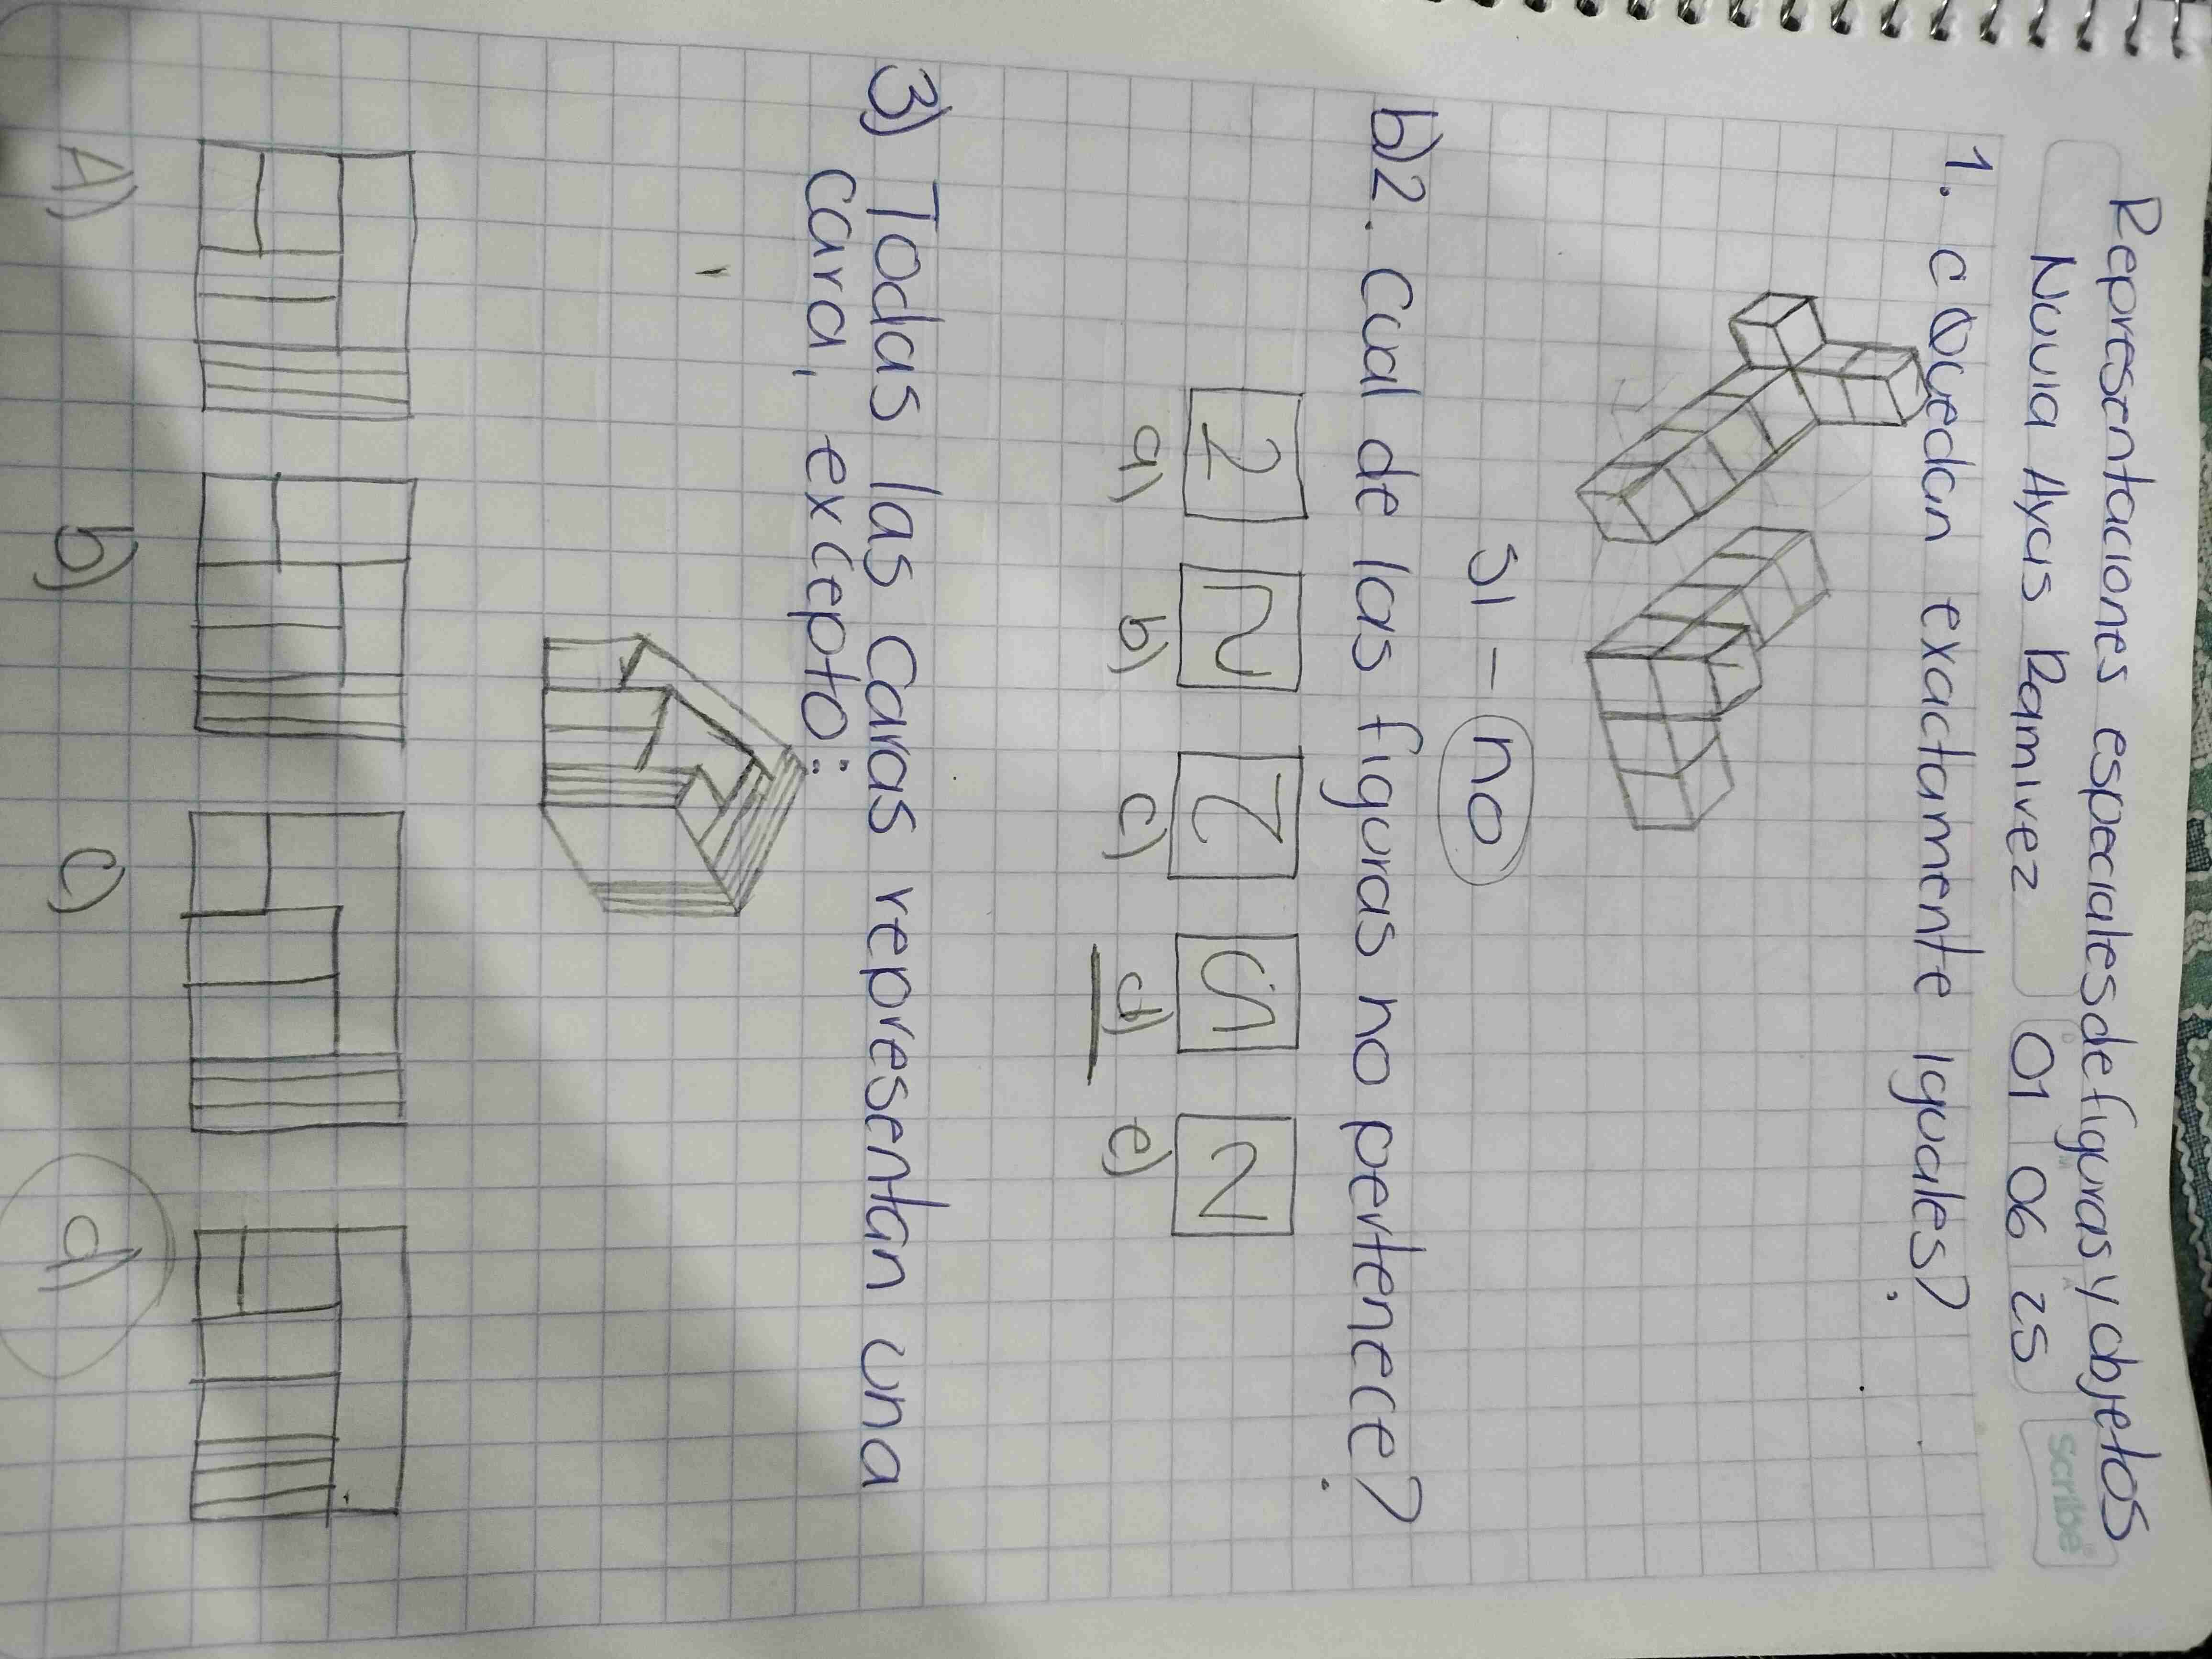 Representaciones especiales de figuras y objetos
Nuvia Ayas Ramirez 01 06 25
scribe
1. ¿Quedan exactamente iguales?
si - no
b)2. Cual de las figuras no pertenece?
a) b) c) d) e)
3) Todas las caras representan una
cara, excepto:
A) b) c) d)